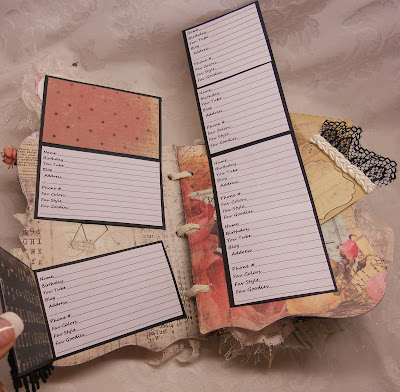 Name
Birthday
You Tube
Blog
Address
Phone #
Fav Colors
Fav Style
Fav Goodies
Name
Birthday
You Tube
Blog
Address
Phone #
Fav Colors
Fav Style
Fav Goodies
Name
Birthday
You Tube
Blog
Address
Phone #
Fav Colors
Fav Style
Fav Goodies
Name
Birthday
You Tube
Blog
Address
Phone #
Fav Colors
Fav Style
Fav Goodies
Name
Birthday
You Tube
Blog
Address
Phone #
Fav Colors
Fav Style
Fav Goodies
Name
Birthday
You Tube
Blog
Address
Phone #
Fav Colors
Fav Style
Fav Goodies